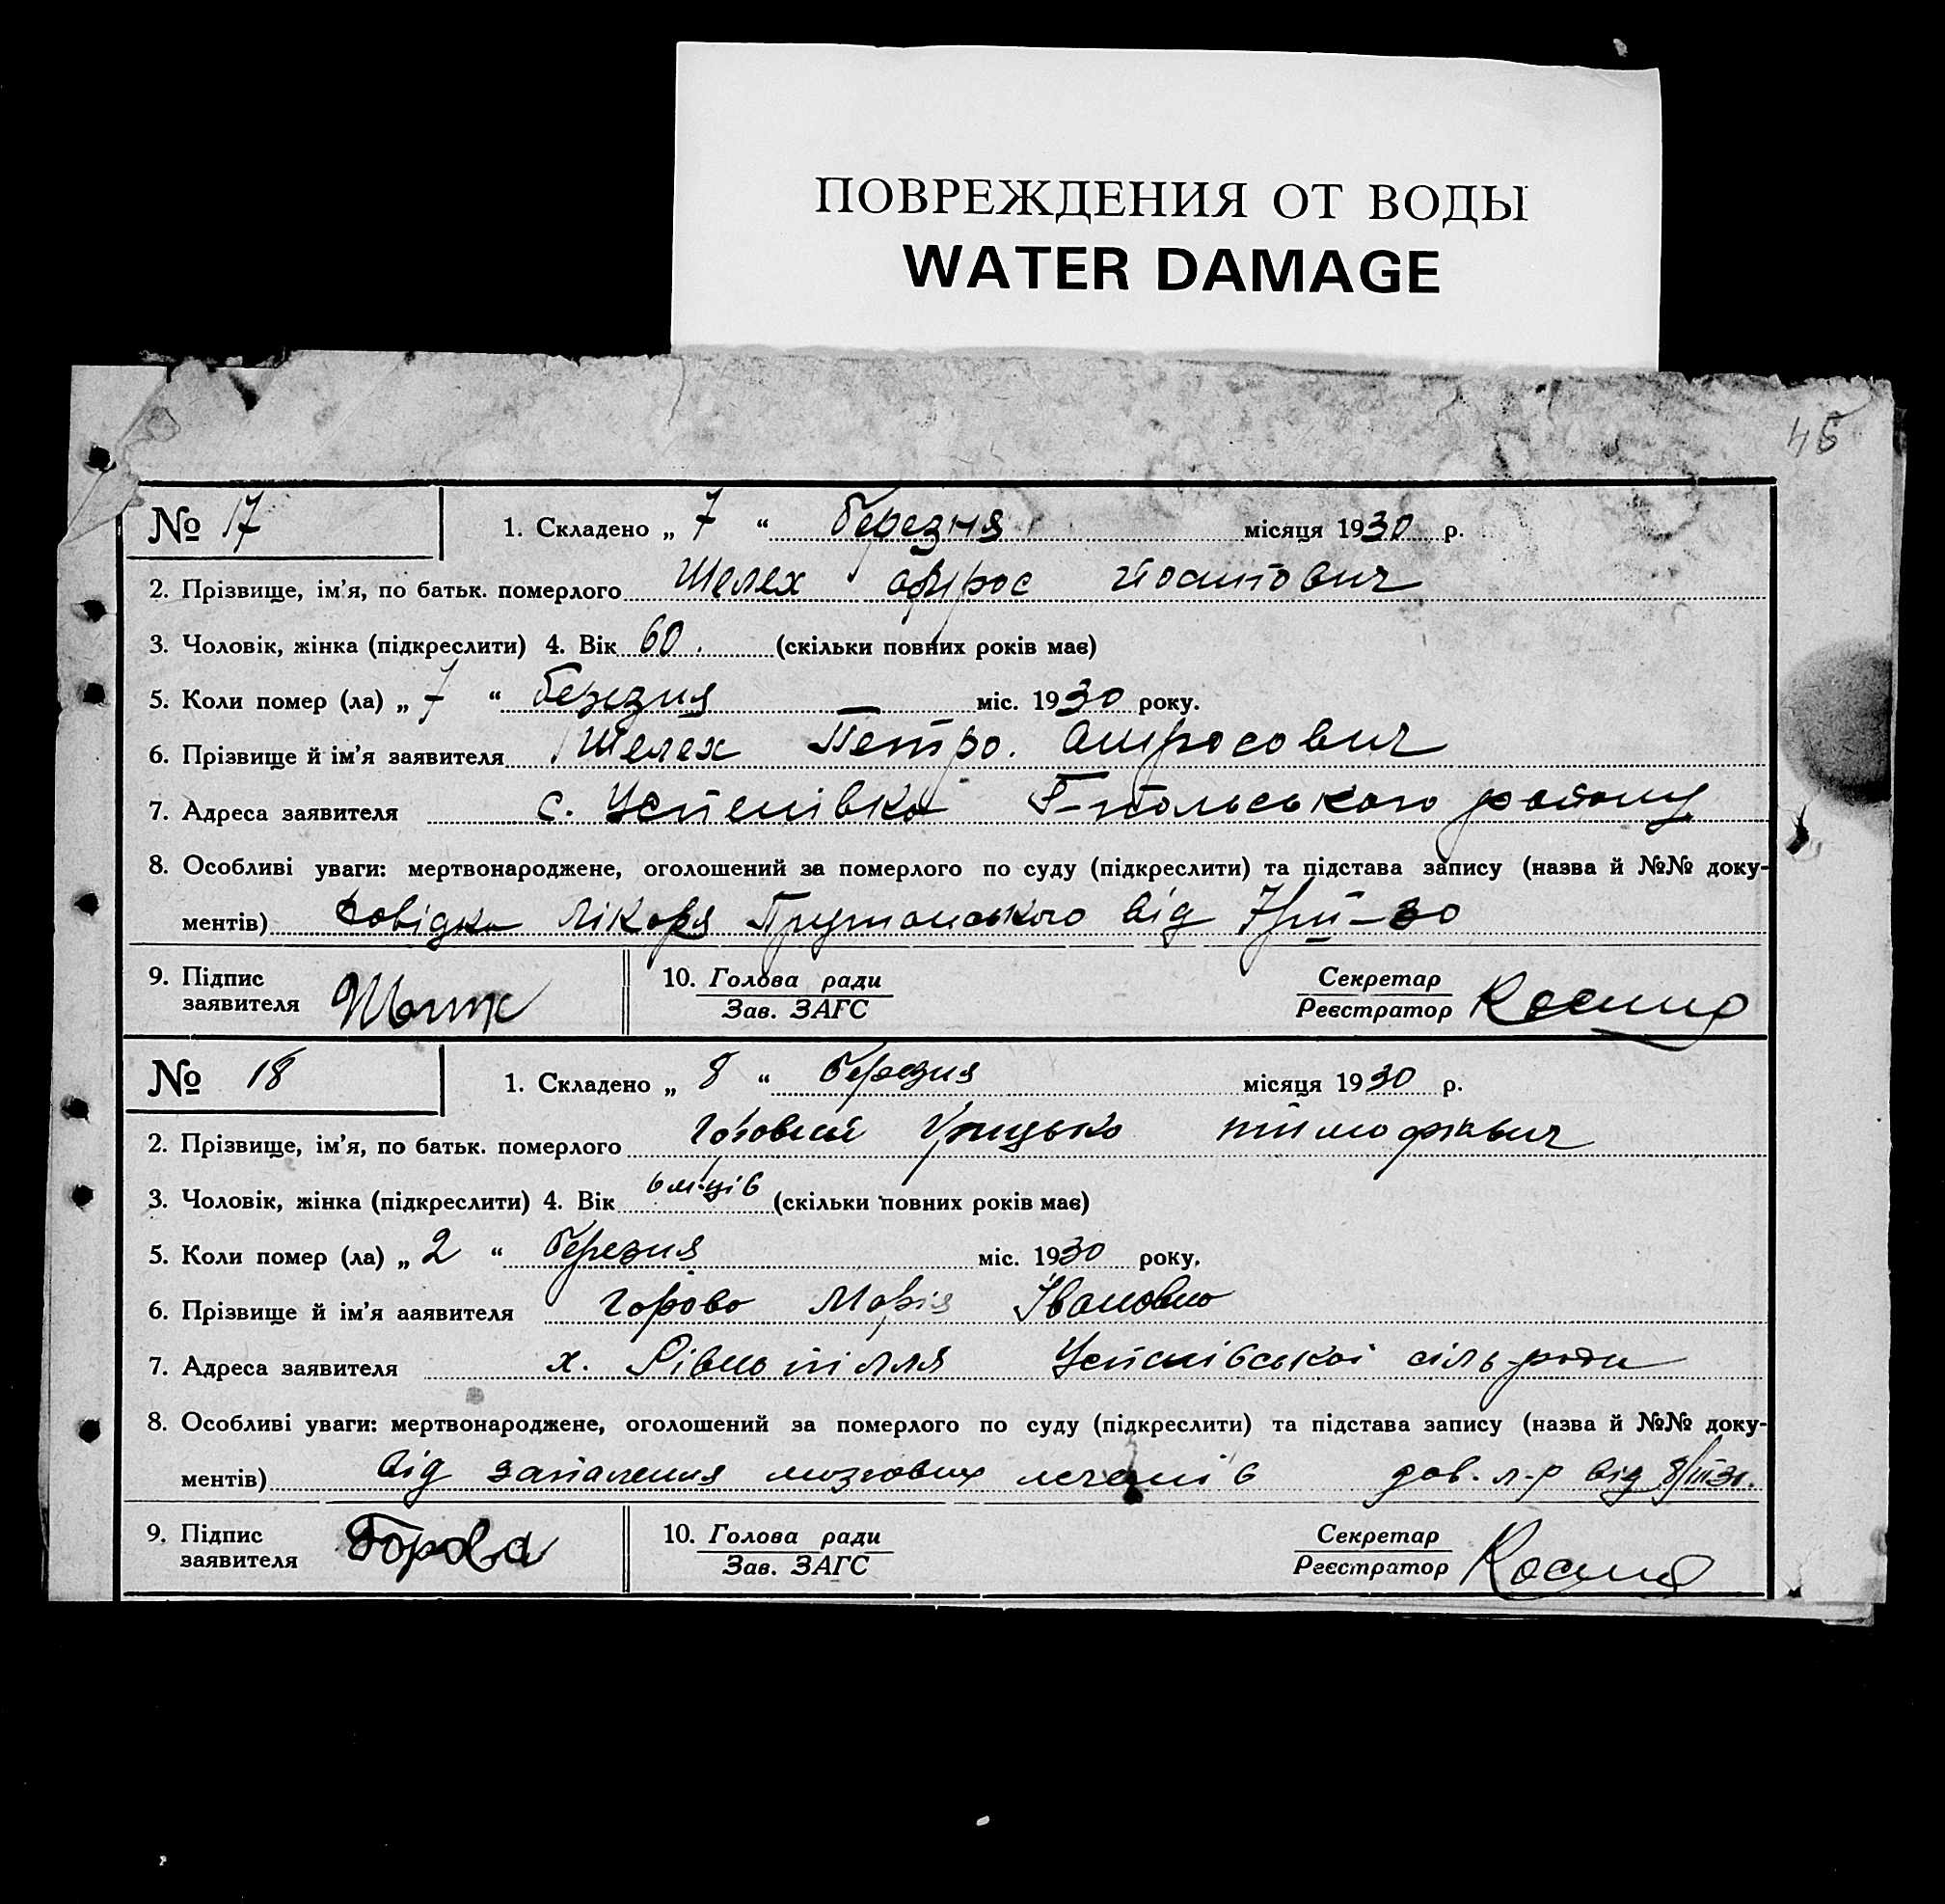 ПОВРЕЖДЕНИЯ ОТ ВОДЫ
WATER DAMAGE
45
№ 17
1. Складено „ 7 “ березня місяця 1930 р.
2. Прізвище, ім'я, по батьк. померлого Шелех
3. Чоловік, жінка (підкреслити) 4. Вік 60. (скільки повних років має)
5. Коли помер (ла) „ 7 “ березня міс. 1930 року.
6. Прізвище й ім'я заявителя Шелех Петро. Амросович
7. Адреса заявителя с. Успенівка Г-польського району
8. Особливі уваги: мертвонароджене, оголошений за померлого по суду (підкреслити) та підстава запису (назва й №№ доку-
ментів) Довідка лікаря від 7/III-30
9. Підпис
заявителя
10. Голова ради
Зав. ЗАГС
Секретар
Реєстратор
№ 18
1. Складено „ 8 “ березня місяця 1930 р.
2. Прізвище, ім'я, по батьк. померлого Горовий Грицько
3. Чоловік, жінка (підкреслити) 4. Вік 6 м-ців (скільки повних років має)
5. Коли помер (ла) „ 2 “ березня міс. 1930 року.
6. Прізвище й ім'я ааявителя Горова Марія Івановна
7. Адреса заявителя х. Рівнопілля Успенівської сіль-ради
8. Особливі уваги: мертвонароджене, оголошений за померлого по суду (підкреслити) та підстава запису (назва й №№ доку-
ментів) від запалення мозгових дов. л-р від 8/III 30.
9. Підпис
заявителя Горова
10. Голова ради
Зав. ЗАГС
Секретар
Реєстратор